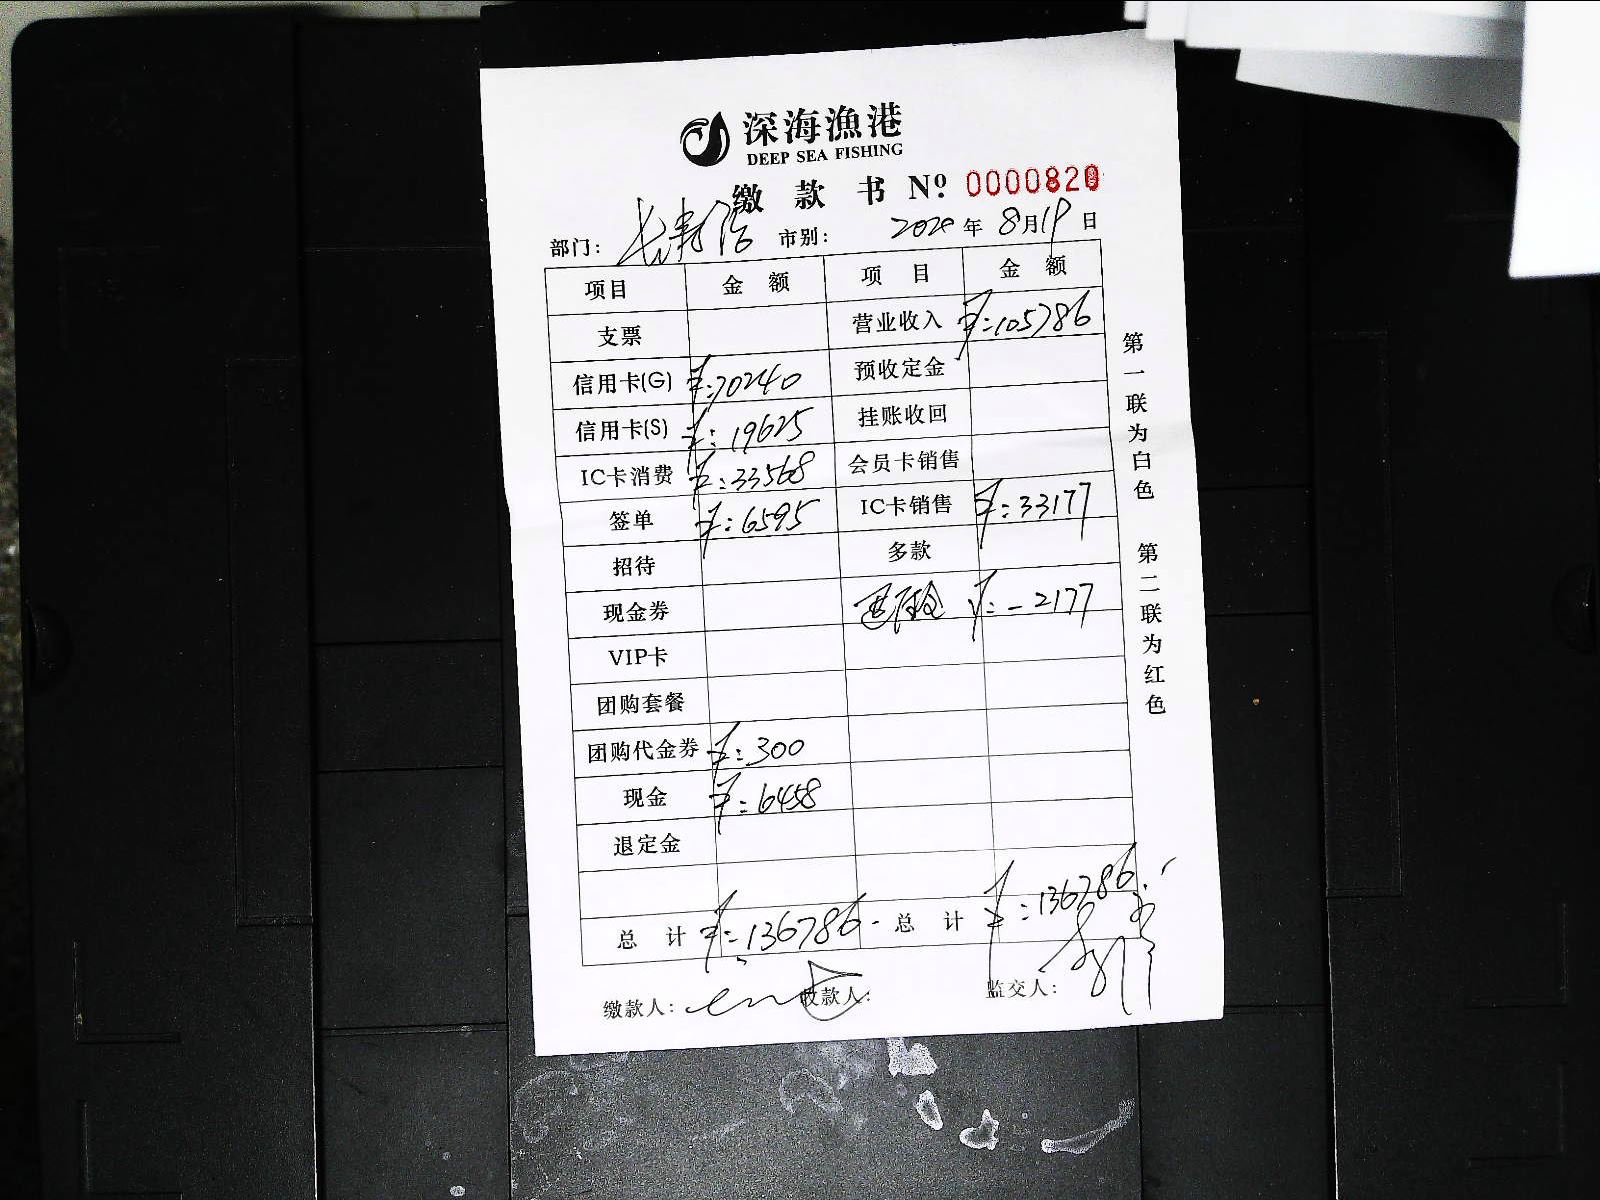 深海渔港
DEEP SEA FISHING
缴款书 Nº: 0000820
部门: 市别: 2020年8月19日
项目 金额 项目 金额
支票 营业收入 ¥:105786
信用卡(G) ¥:70240 预收定金
信用卡(S) ¥:19625 挂账收回
IC卡消费 ¥:33568 会员卡销售
签单 ¥:6595 IC卡销售 ¥:33177
招待 多款
现金券 ¥:-2177
VIP卡
团购套餐
团购代金券 ¥:300
现金 ¥:6458
退定金
总计 ¥:136786 总计 ¥:136786
缴款人: 收款人: 监交人:
第一联为白色 第二联为红色